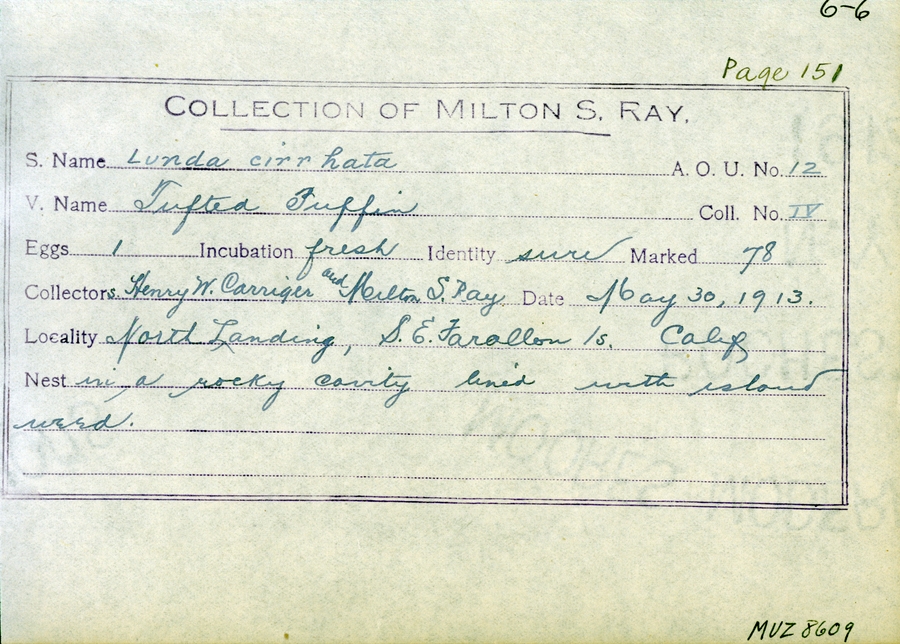 6-6
Page 151
COLLECTION OF MILTON S. RAY.
S. Name Lunda cirrhata A. O. U. No. 12
V. Name Tufted Puffin Coll. No. IV
Eggs 1 Incubation fresh Identity sure Marked 78
Collectors Henry W. Carriger and Milton S. Ray Date May 30, 1913.
Locality North Landing, S. E. Farallon Is. Calif
Nest in a rocky cavity lined with island
weed.
MVZ 8609